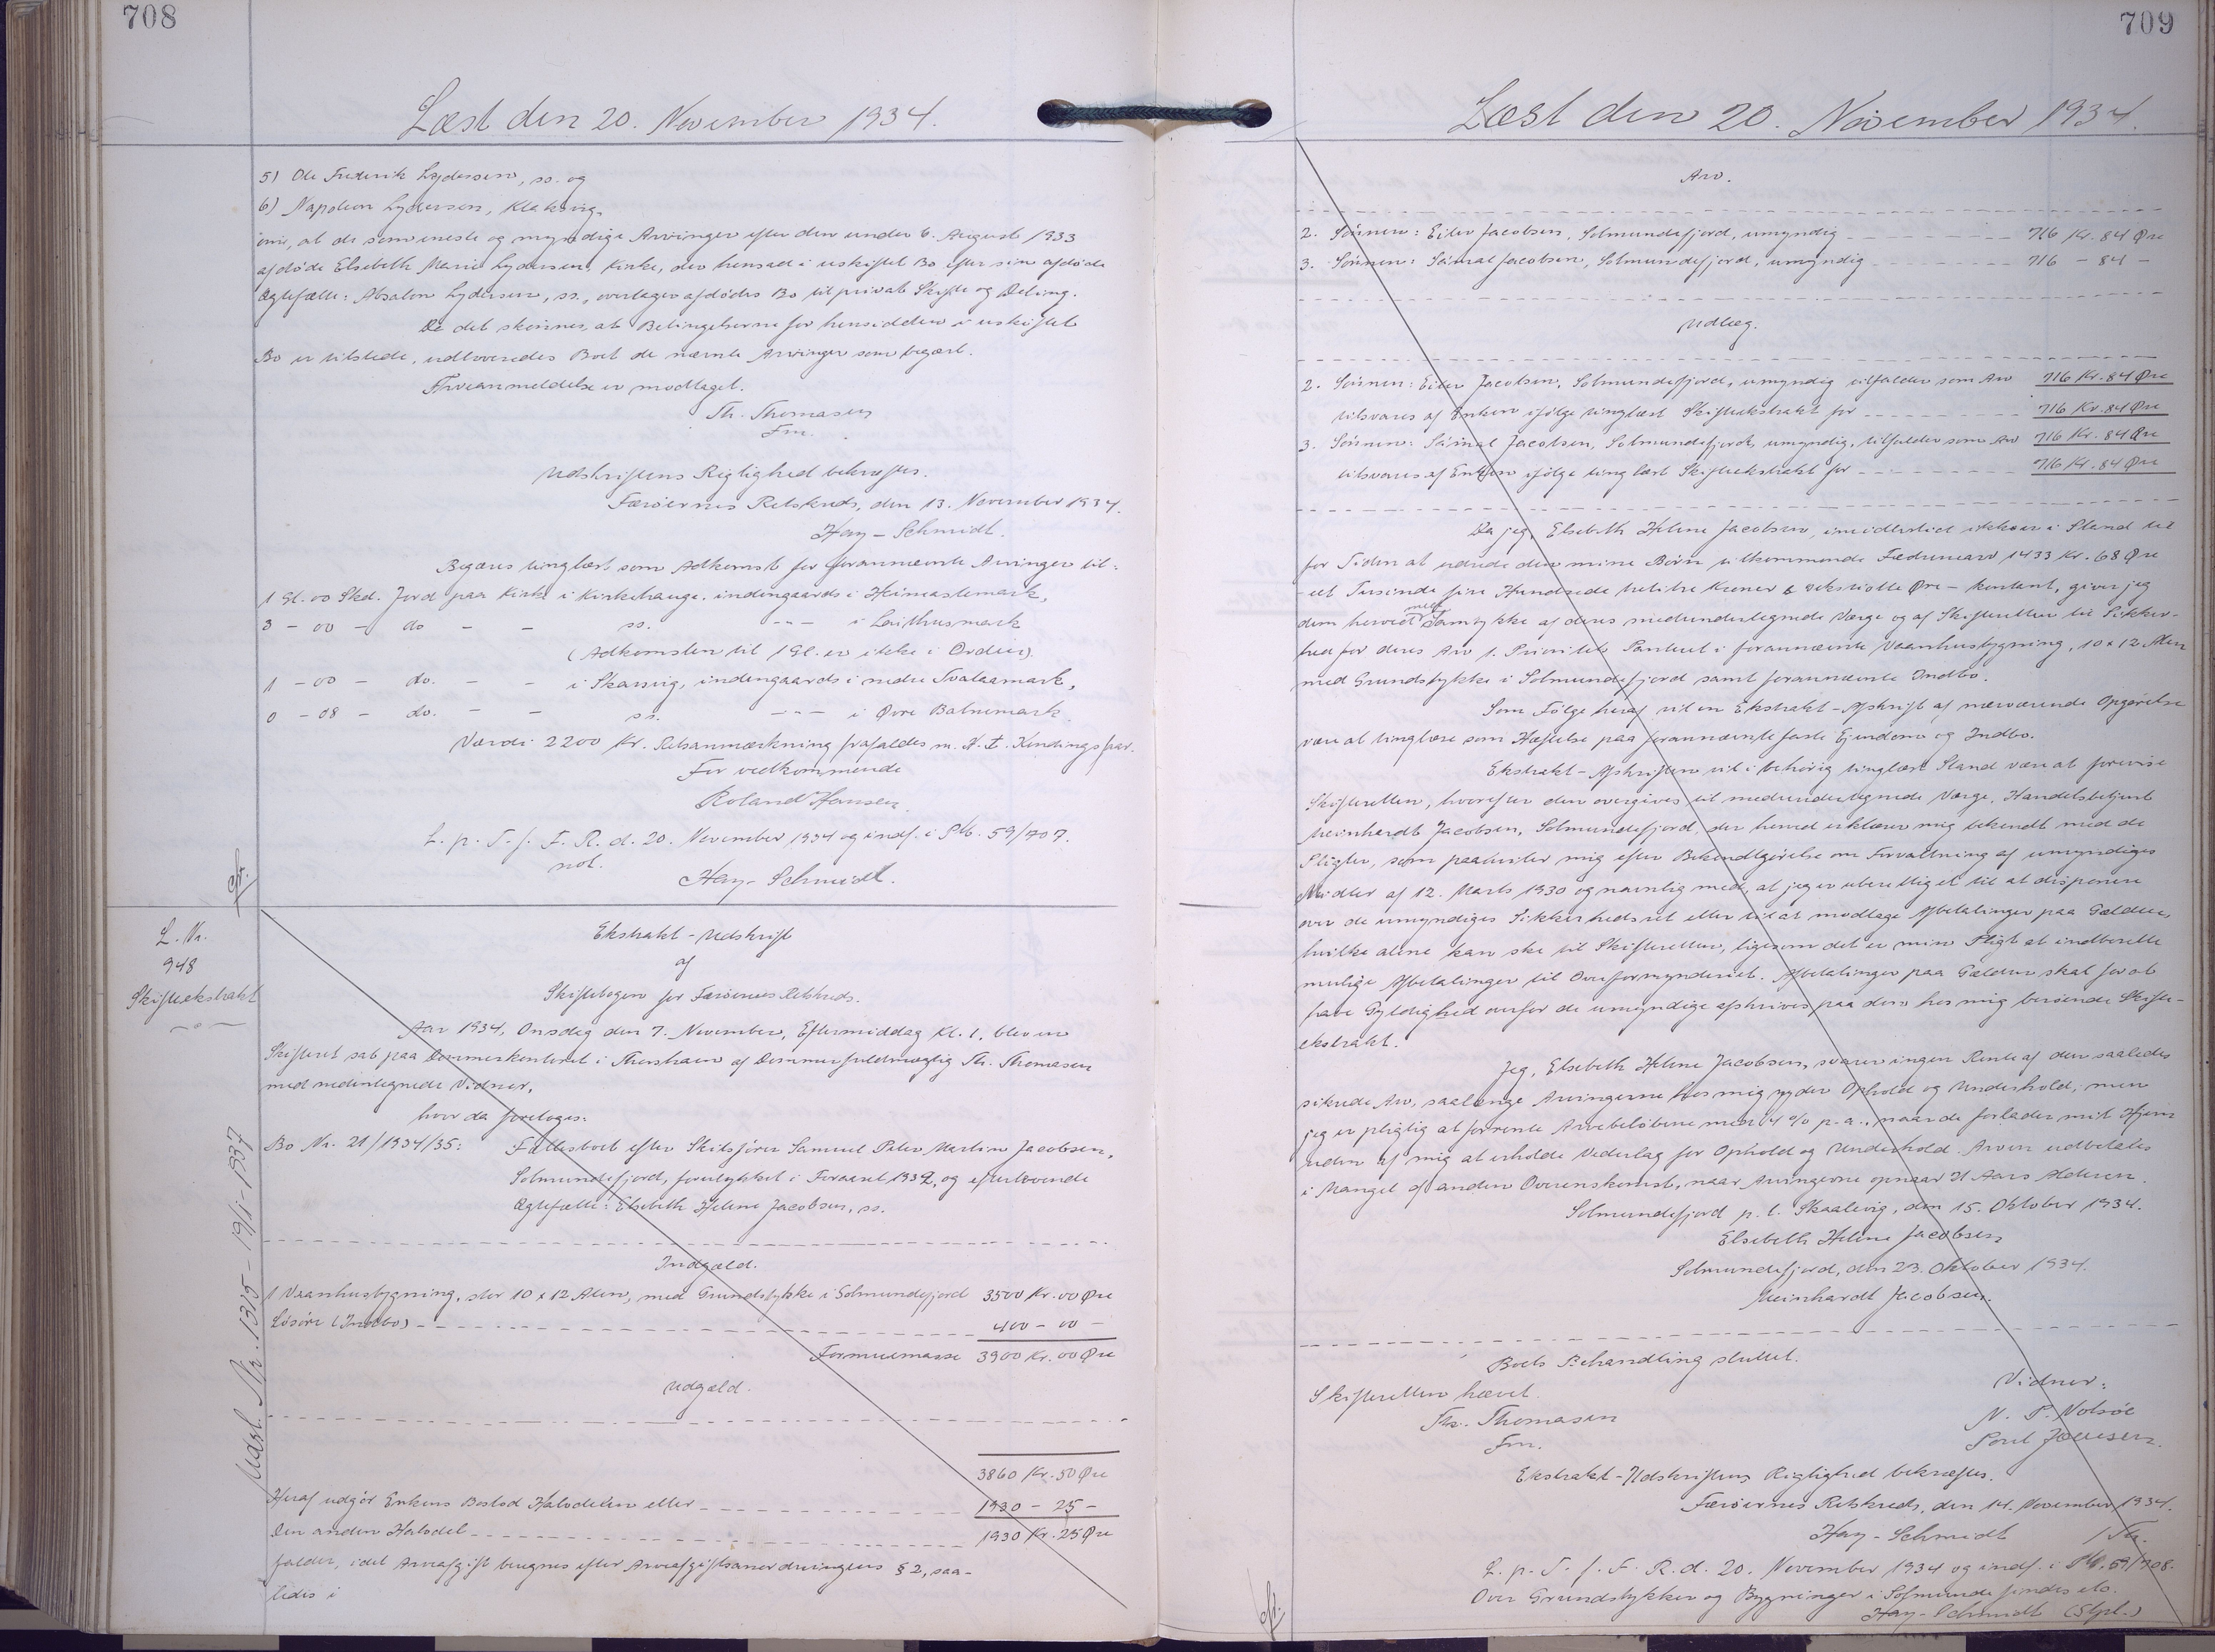 708
Læst den 20. November 1934.
5) Ole Frederik Lydersen, ss. og
6) Napoleon Lydersen, Klaksvig,
at de som eneste og myndige Arvinger efter den under 6. August 1933
afdöde Elsebeth Marie Lydersen, Kirke, der hensad i uskiftet Bo efter sin afdöde
Ægtefælle: Absalon Lydersen, ss., overtager afdödes Bo til privat Skifte og Deling.
Da det skönnes, at Betingelserne for hensidden i uskiftet
Bo er tilstede, udleveredes Boet de nævnte Arvinger som begært.
Arveanmeldelse er modtaget.
Th. Thomasen
Fm.
Udskriftens Rigtighed bekræftes.
Færöernes Retskreds, den 13. November 1934.
Hay-Schmidt.
Begæres tinglæst som Adkomst for forannævnte Arvinger til:
1 Gl. 00 Skd. Jord paa Kirke i Kirkehauge, indengaards i Heimastemark,
3 - 00 - do - - ss. - - - i Leithusmark
(Adkomsten til 1 Gl. er ikke i Orden).
1 - 00 - do. - - i Skarvig, indengaards i nedre Tvataamark,
0 - 08 - do. - - ss. - - - i Øvre Batnemark.
Værdi 2200 Kr. Retsanmærkning frafaldes m. H. t. Kendingsfaar.
For vedkommende
Roland Hansen.
L. p. T. f. F. R. d. 20. November 1934 og indf. i Pb. 59/707.
not.
Hay-Schmidt.
L. Nr.
948
Skifteekstrakt
Udsl. Nr. 1315 - 19/1 - 1937
Ekstrakt-Udskrift
af
Skiftebogen for Færöernes Retskreds.
Aar 1934, Onsdag den 7. November, Eftermiddag Kl. 1, blev en
Skifteret sat paa Dommerkontoret i Thorshavn af Dommerfuldmægtig Th. Thomasen
med nedentegnede Vidner,
hvor da foretoges:
Bo Nr. 21/1934/35: Fællesboet efter Skibsförer Samuel Peter Martin Jacobsen,
Solmundefjord, forulykket i Foraaret 1932, og efterlevende
Ægtefælle: Elsebeth Helene Jacobsen, ss.
Indgæld.
1 Vaanhusbygning, stor 10 x 12 Alen, med Grundstykke i Solmundefjord 3500 Kr. 00 Øre
Lösöre (Indbo) 400 - 00 -
Formuemasse 3900 Kr. 00 Øre
Udgæld.
3860 Kr. 50 Øre
Heraf udgör Enkens Boslod Halvdelen eller 1930 - 25 -
Den anden Halvdel 1930 Kr. 25 Øre
falder, idet Arveafgift beregnes efter Arveafgiftsanordningens § 2, saa-
ledes i
709
Læst den 20. November 1934.
Arv.
2. Sönnen: Eiler Jacobsen, Solmundefjord, umyndig 716 Kr. 84 Øre
3. Sönnen: Sámal Jacobsen, Solmundefjord, umyndig 716 - 84 -
Udlæg.
2. Sönnen: Eiler Jacobsen, Solmundefjord, umyndig tilfalder som Arv 716 Kr. 84 Øre
tilsvares af Enken ifölge tinglæst Skifteekstrakt for 716 Kr. 84 Øre
3. Sönnen: Sámal Jacobsen, Solmundefjord, umyndig, tilfalder som Arv 716 Kr. 84 Øre
tilsvares af Enken ifölge tinglæst Skifteekstrakt for 716 Kr. 84 Øre
Da jeg, Elsebeth Helene Jacobsen, imidlertid ikke er i Stand til
for Tiden at udrede den mine Börn tilkommende Fædrenearv 1433 Kr. 68 Øre
- et Tusinde fire Hundrede treti tre Kroner & seksti otte Øre - kontant, giver jeg
dem herved med Samtykke af deres medundertegnede Værge og af Skifteretten til Sikker-
hed for deres Arv 1. Prioritets Panteret i forannævnte Vaanhusbygning, 10 x 12 Alen
med Grundstykke i Solmundefjord samt forannævnte Indbo.
Som Fölge heraf vil en Ekstrakt-Afskrift af nærværende Opgörelse
være at tinglæse som Hæftelse paa forannævnte faste Ejendom og Indbo.
Ekstrakt-Afskriften vil i behörig tinglæst Stand være at forevise
Skifteretten, hvorefter den overgives til medundertegnede Værge, Handelsbetjent
Meinhardt Jacobsen, Solmundefjord, der herved erklærer mig bekendt med de
Pligter, som paahviler mig efter Bekendtgörelse om Forvaltning af umyndiges
Midler af 12. Marts 1930 og navnlig med, at jeg er uberettiget til at disponere
over de umyndiges Sikkerhedsret eller til at modtage Afbetalinger paa Gælden,
hvilke alene kan ske til Skifteretten, ligesom det er min Pligt at indberette
mulige Afbetalinger til Overformynderiet. Afbetalinger paa Gælden skal for at
have Gyldighed overfor de umyndige afskrives paa den hos mig beroende Skifte-
ekstrakt.
Jeg, Elsebeth Helene Jacobsen, svarer ingen Rente af den saaledes
sikrede Arv, saalænge Arvingerne hos mig nyder Ophold og Underhold, men
jeg er pligtig at forrente Arvebelöbene med 4 % p. a., naar de forlader mit Hjem
uden af mig at erholde Vederlag for Ophold og Underhold. Arven udbetales
i Mangel af anden Overenskomst, naar Arvingerne opnaar 21 Aars Alderen.
Solmundefjord p. t. Skaalevig, den 15. Oktober 1934.
Elsebeth Helene Jacobsen
Solmundefjord, den 23. Oktober 1934.
Meinhardt Jacobsen.
Boets Behandling sluttet.
Skifteretten hævet.
Vidner:
Th. Thomasen
N. P. Nolsöe
Fm.
Poul Joensen.
Ekstrakt-Udskriftens Rigtighed bekræftes.
Færöernes Retskreds, den 14. November 1934.
Hay-Schmidt
L. p. T. f. F. R. d. 20. November 1934 og indf. i Pb. 59/708.
Over Grundstykker og Bygninger i Solmunde findes etc.
Hay-Schmidt (Stpl.)